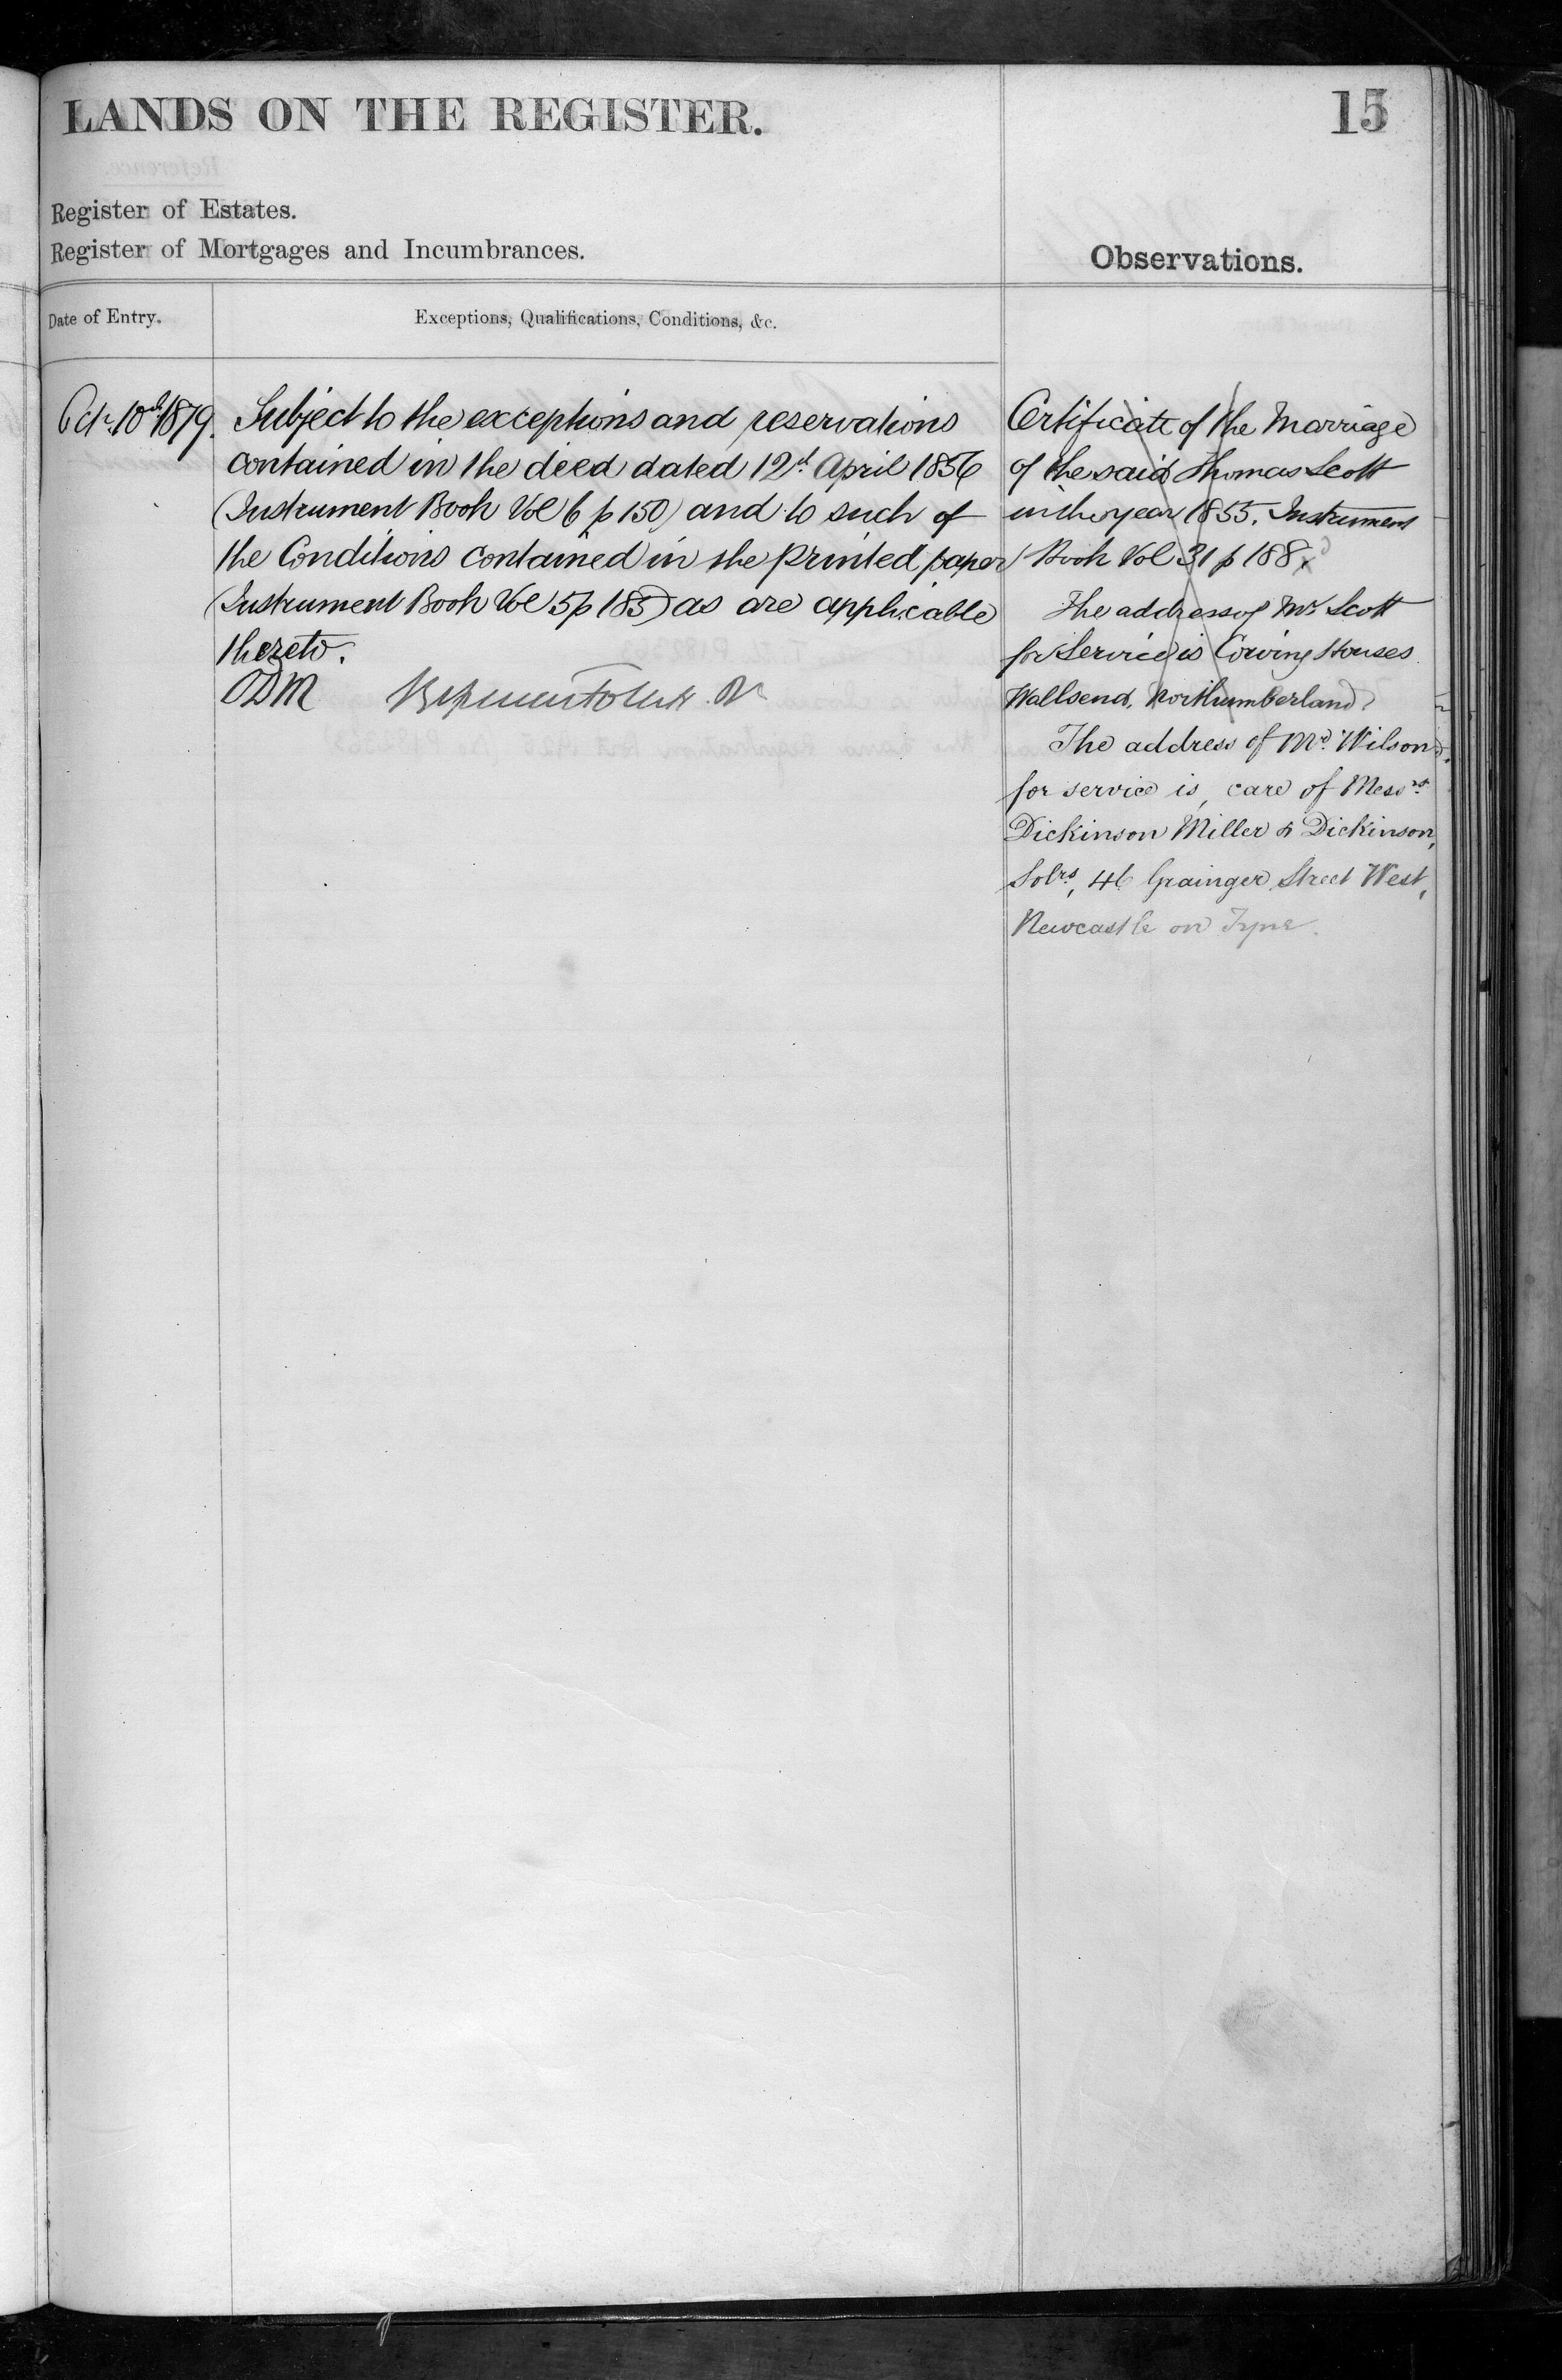 LANDS ON THE REGISTER.
15
Register of Estates.
Register of Mortgages and Incumbrances.
Observations.
Date of Entry.
Exceptions, Qualifications, Conditions, &c.
Octr. 10th 1879.
Subject to the exceptions and reservations
contained in the deed dated 12th April 1856
(Instrument Book Vol 6 p 150) and to such of
the Conditions contained in the printed paper
(Instrument Book Vol 5 p 185) as are applicable
thereto.
ODM
Certificate of the Marriage
of the said Thomas Scott
in the year 1855. Instrument
Book Vol 31 p 188.
The address of Mr Scott
for Service is Houses
Wallsend, Northumberland
The address of Mr. Wilson
for service is, care of Messrs.
Dickinson Miller & Dickinson,
Solrs, 46 Grainger Street West,
Newcastle on Tyne.